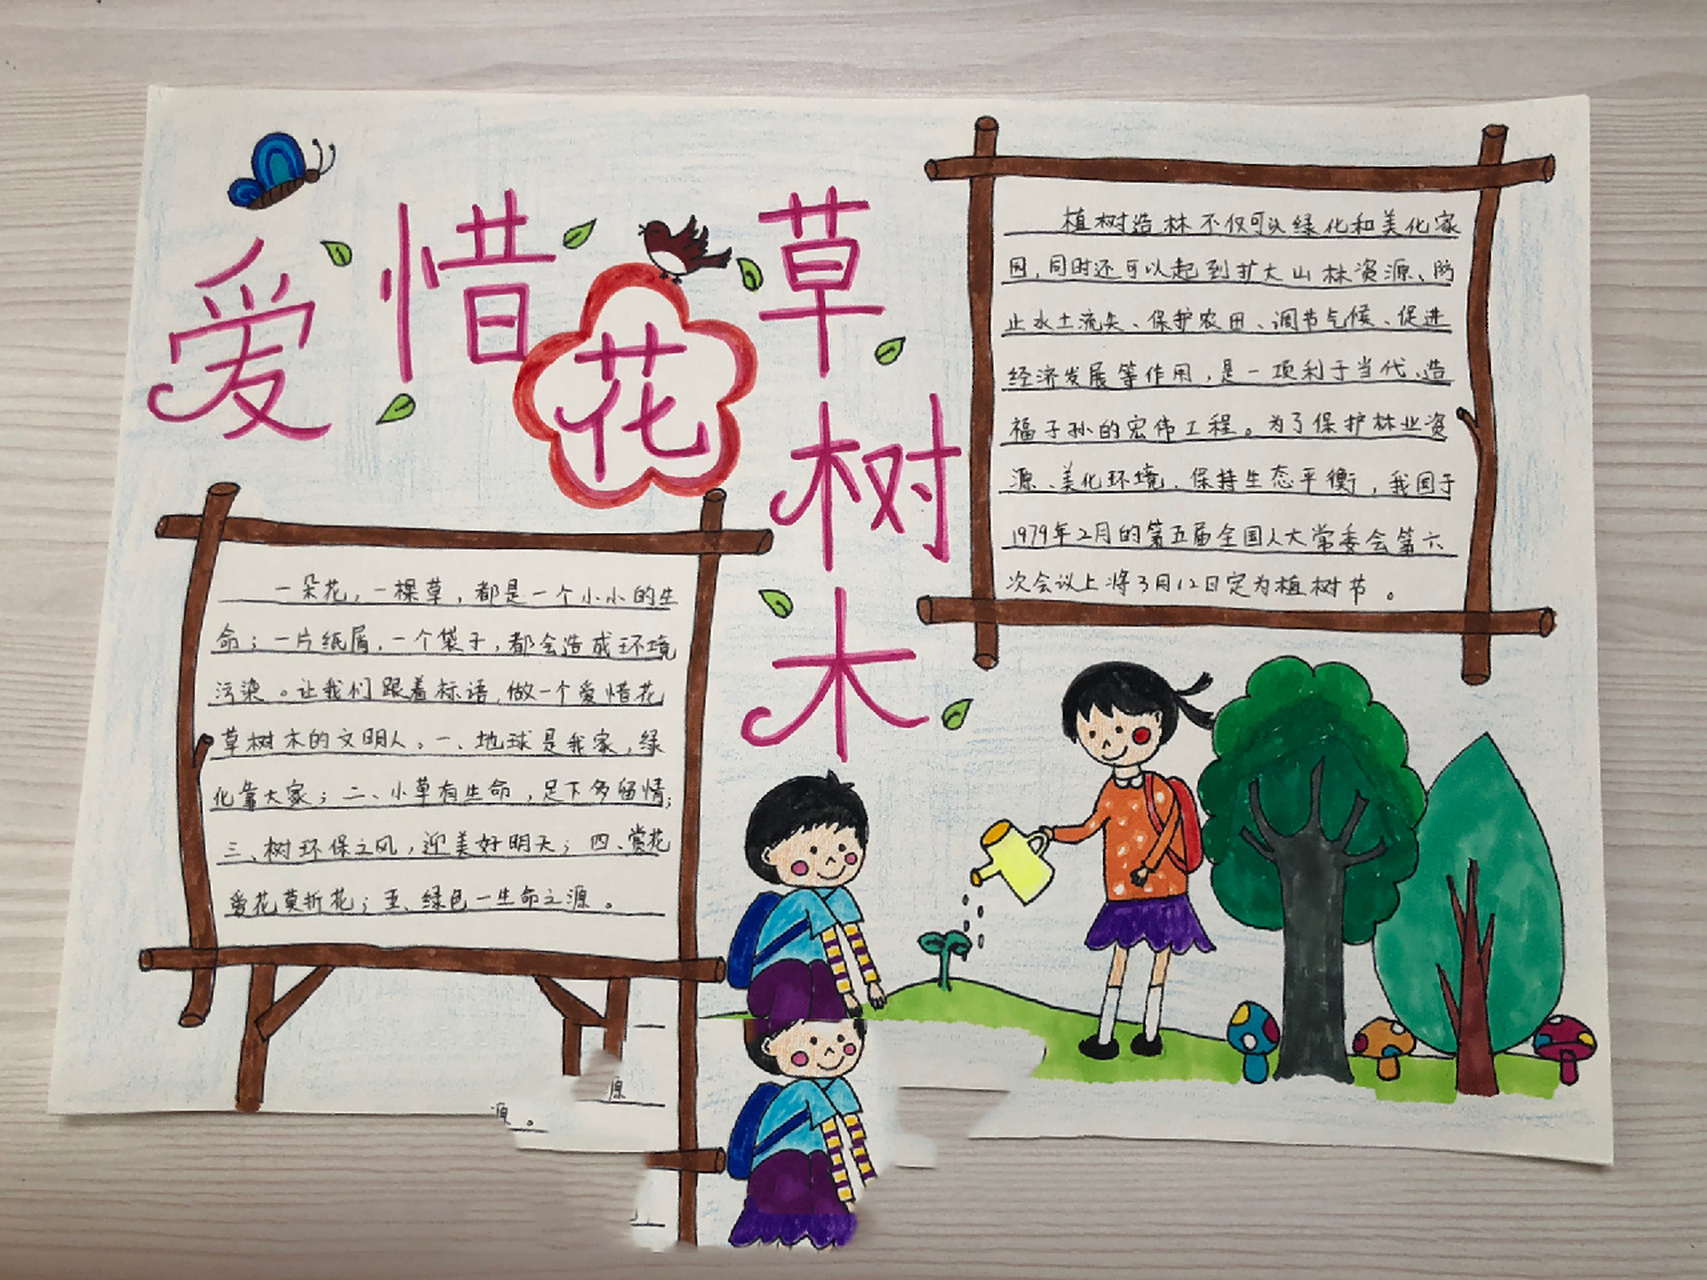 爱惜花草树木
一朵花，一棵草，都是一个小小的生
命；一片纸屑，一个袋子，都会造成环境
污染。让我们跟着标语，做一个爱惜花
草树木的文明人。一、地球是我家，绿
化靠大家；二、小草有生命，足下多留情；
三、树环保之风，迎美好明天；四、赏花
爱花莫折花；五、绿色一生命之源。
植树造林不仅可以绿化和美化家
园，同时还可以起到扩大山林资源、防
止水土流失、保护农田、调节气候、促进
经济发展等作用，是一项利于当代、造
福子孙的宏伟工程。为了保护林业资
源、美化环境、保持生态平衡，我国于
1979年2月的第五届全国人大常委会第六
次会议上将3月12日定为植树节。
原
源。